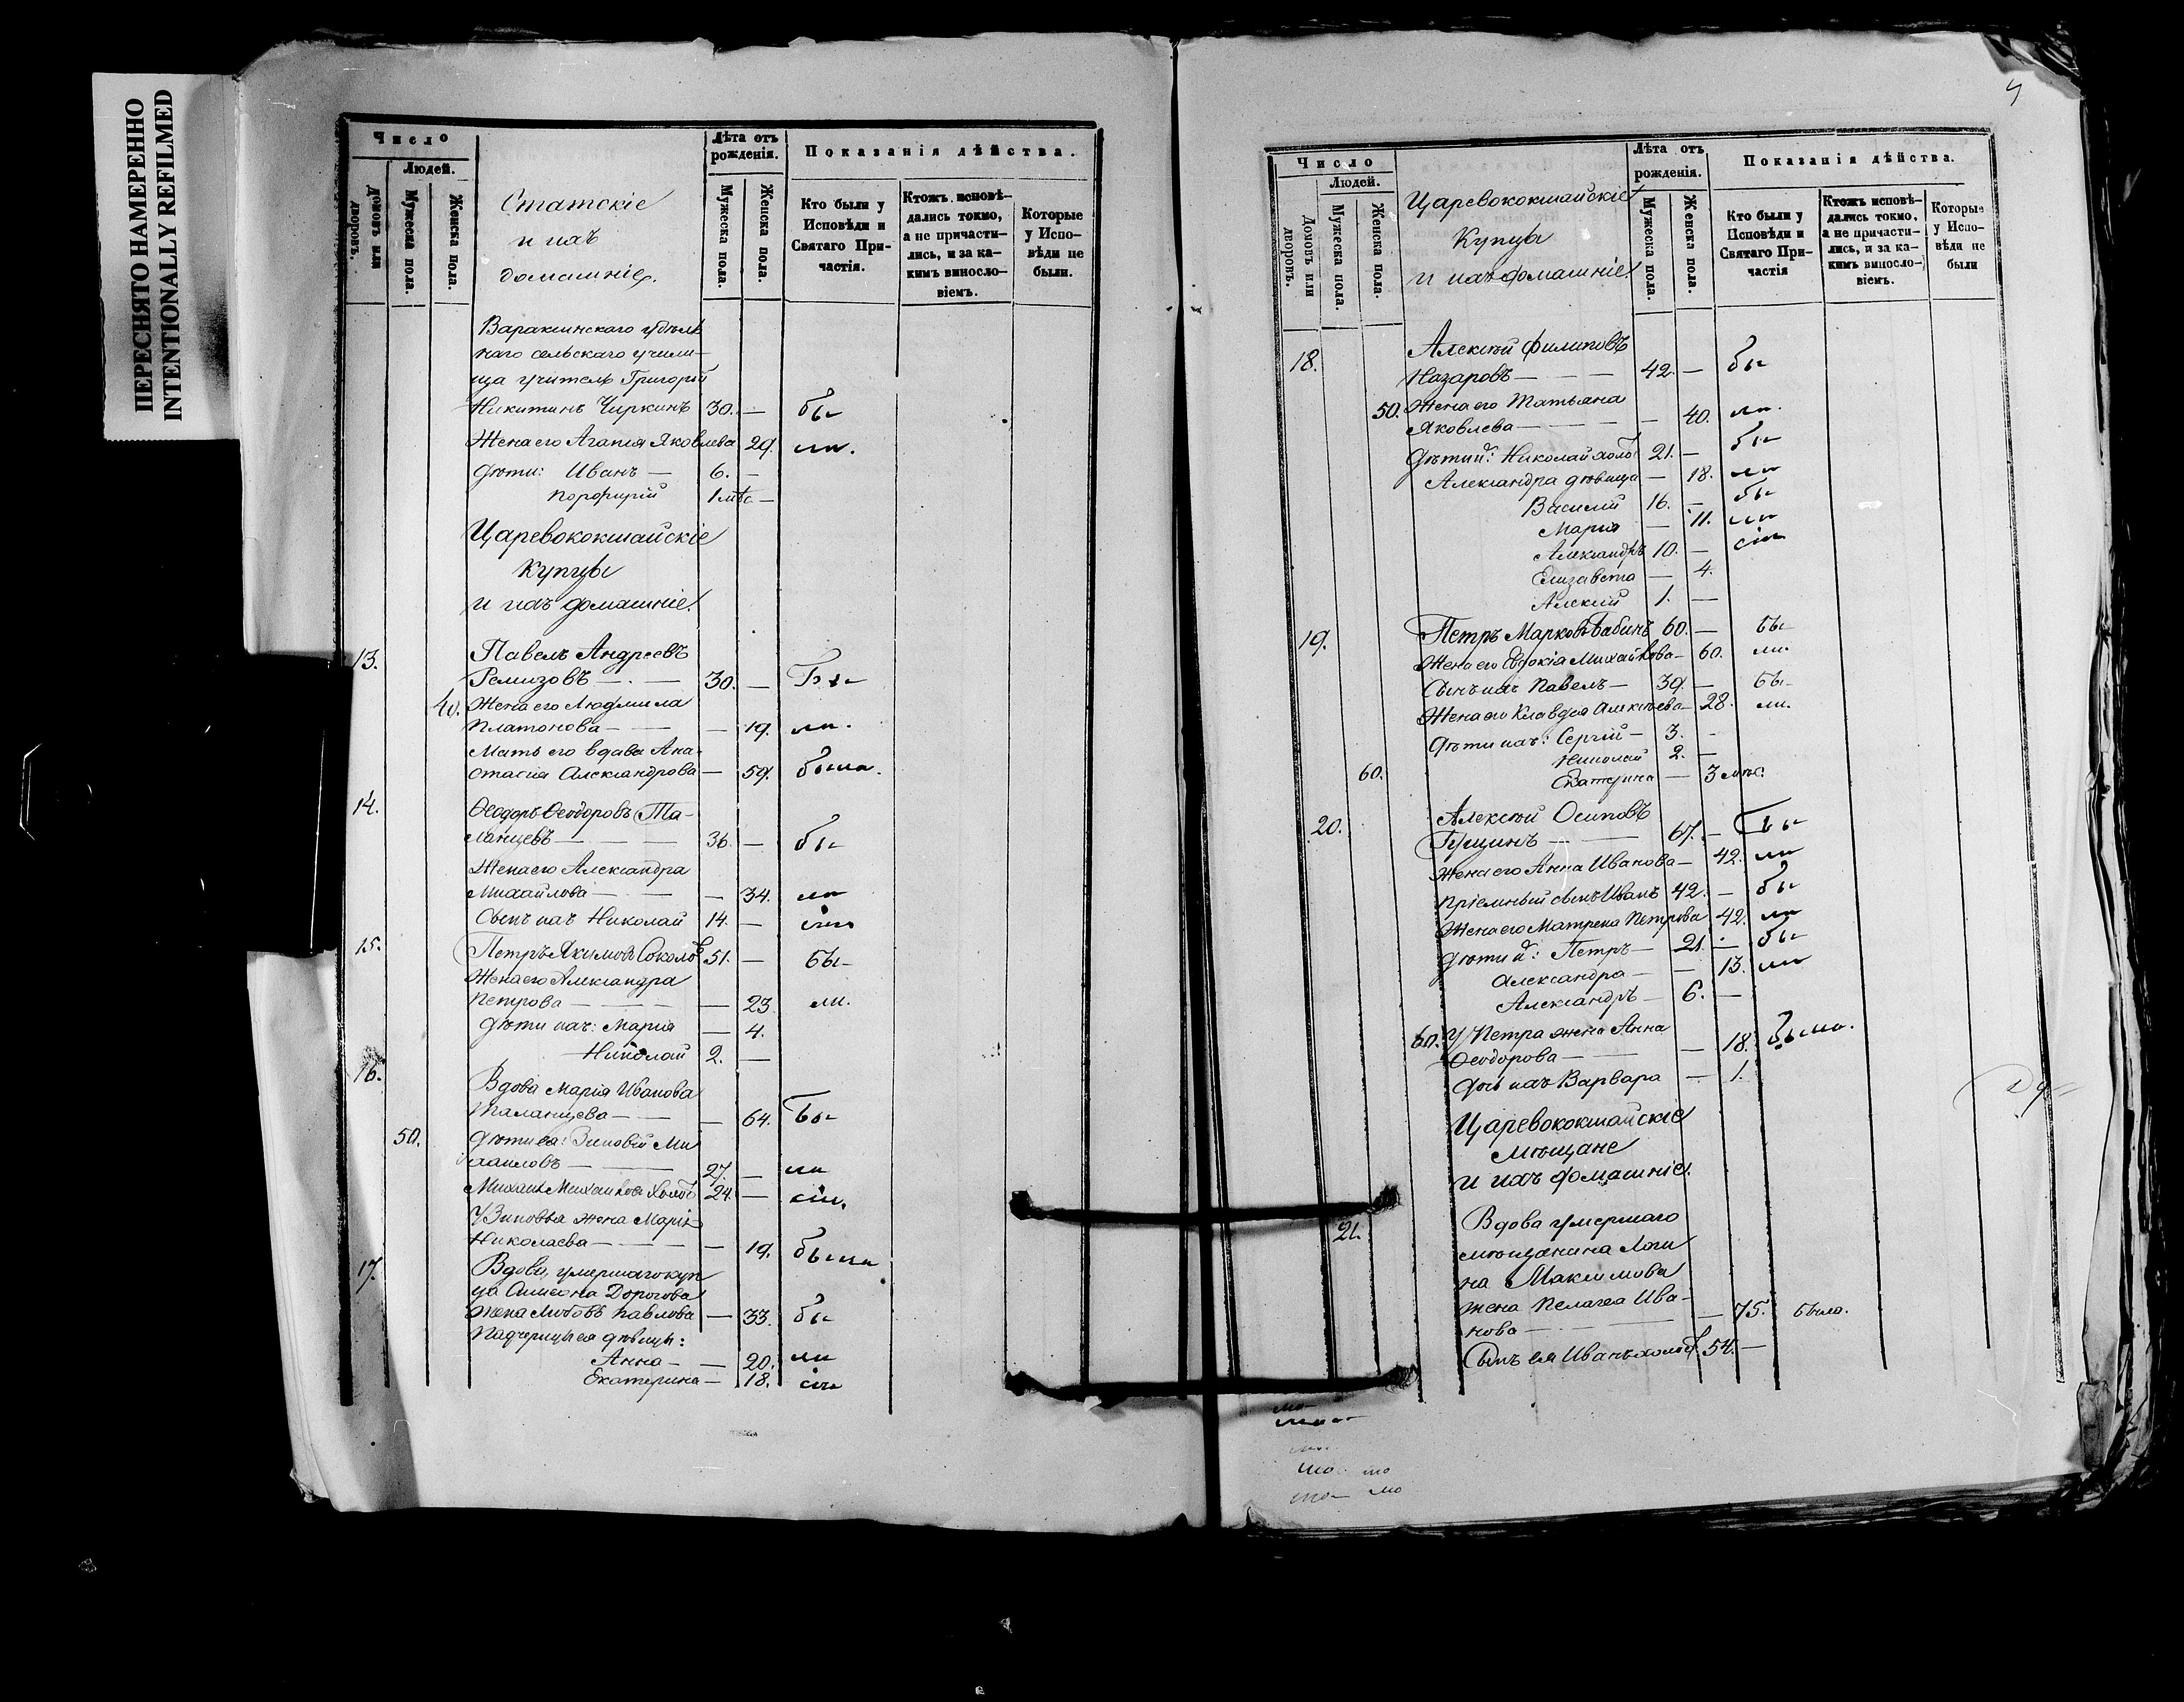 ПЕРЕСНЯТО НАМЕРЕННО
INTENTIONALLY REFILMED
Число
Людей.
Домовъ или дворовъ.
Мужеска пола.
Женска пола.
Статскіе
и ихъ
домашніе.
Лѣта отъ рожденія.
Мужеска пола.
Женска пола.
Показанія дѣйства.
Кто были у Исповѣди и Святаго Причастія.
Ктожъ исповѣдались токмо, а не причастились, и за какимъ винословіемъ.
Которые у Исповѣди не были.
Вараксинскаго удѣль
наго сельскаго учили-
ща учитель Григорій
Никитинъ Чиркинъ 30. — бы
Жена его Агапія Яковлева 29. ли.
Дѣти: Иванъ — 6. —
Порфирій 1 мѣс —
Царевококшайскіе
Купцы
и ихъ домашніе.
13. Павелъ Андреевъ
Ремизовъ — 30. — Бы
40. Жена его Людмила
Платонова — — 19. ли.
Мать его вдова Ана-
стасія Александрова — 59. была.
14. Ѳеодоръ Ѳеодоровъ Та-
ланцевъ — 36. — бы
Жена его Александра
Михайлова — — 34. ли
Сынъ ихъ Николай 14. — сіи
15. Петръ Якимовъ Соколовъ 51. — бы
Жена его Александра
Петрова — — 23 ли.
Дѣти ихъ: Марія — 4.
Николай 2. —
16. Вдова Марія Иванова
Таланцева — — 64. Бы
50. Дѣти ея: Зиновій Ми
хаиловъ — 27. — ли
Михаилъ Михаиловъ холос 24. — сіи.
У Зиновья жена Марія
Николаева — — 19. была
17. Вдова, умершаго куп
ца Симеона Дорогова
жена Любовь Павлова — 33. бы
Падчерицы ея дѣвицы:
Анна — — 20. ли
Екатерина — 18. сіи
Число
Людей.
Домовъ или дворовъ.
Мужеска пола.
Женска пола.
Царевококшайскіе
Купцы
и ихъ домашніе.
Лѣта отъ рожденія.
Мужеска пола.
Женска пола.
Показанія дѣйства.
Кто были у Исповѣди и Святаго Причастія
Ктожъ исповѣдались токмо, а не причастились, и за какимъ винословіемъ.
Которые у Исповѣди не были
18. Алексѣй Филиповъ
Назаровъ — 42. — бы
50. Жена его Татьяна
Яковлева — — 40. ли.
Дѣти ихъ: Николай холос 21. — бы
Александра дѣвица — 18. ли
Василій 16. — бы
Марія — 11. ли
Александръ 10. — сіи
Елизавета — 4.
Алексій 1. —
19. Петръ Марковъ Бабинъ 60. — бы
Жена его Евдокія Михайлова — 60. ли.
Сынъ ихъ Павелъ — 39. — бы
Жена его Клавдія Алексѣева — 28. ли.
Дѣти ихъ: Сергій — 3. -
Николай 2. —
60. Екатерина — 3 мѣс.
20. Алексѣй Осиповъ
Пущинъ — 67. — Бы
Жена его Анна Иванова — 42. ли
Пріемный сынъ Иванъ 42. — бы
Жена его Матрена Петрова 42. ли
Дѣти ихъ: Петръ — 21. — бы
Александра — — 13. ли
Александръ — 6. —
60. У Петра жена Анна
Ѳеодорова — — 18. была.
Дочь ихъ Варвара — 1.
Царевококшайскіе
мѣщане
и ихъ домашніе.
21. Вдова умершаго
мѣщанина Логи
на Максимова
жена Пелагея Ива-
нова — — 75. была.
Сынъ ея Иванъ холос. 54. —